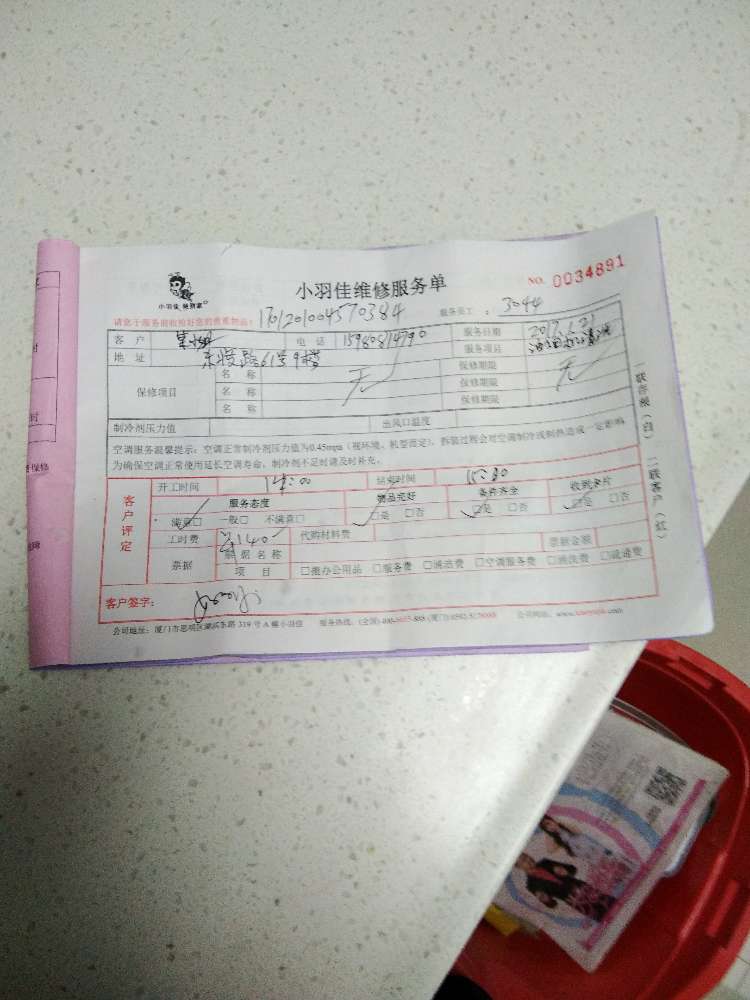 小羽佳 家到家
小羽佳维修服务单
NO. 0034891
请您于服务前收检好您的贵重物品!
服务员工: 3044
客户 电话 服务日期
地址 东浦路61号9楼 服务项目
保修项目
名称 无 保修期限 无
名称 保修期限
名称 保修期限
制冷剂压力值 出风口温度
空调服务温馨提示:空调正常制冷剂压力值为0.45mpa(视环境、机型而定),拆装过程会对空调制冷或制热造成一定影响
为确保空调正常使用延长空调寿命,制冷剂不足时请及时补充。
客户评定
开工时间 14:00 结束时间 15:30
服务态度 物品完好 条件齐全 收到名片
满意□ 一般□ 不满意□ □是 □否 □是 □否 □是 □否
工时费 ¥140 代购材料费
票据 票据名称 票据金额
项目 □搬办公用品 □服务费 □清洁费 □空调服务费 □清洗费 □疏通费
客户签字:
公司地址:厦门市思明区湖滨东路319号A幢小羽佳 服务热线:(全国) 公司网址:
二联客户(红)